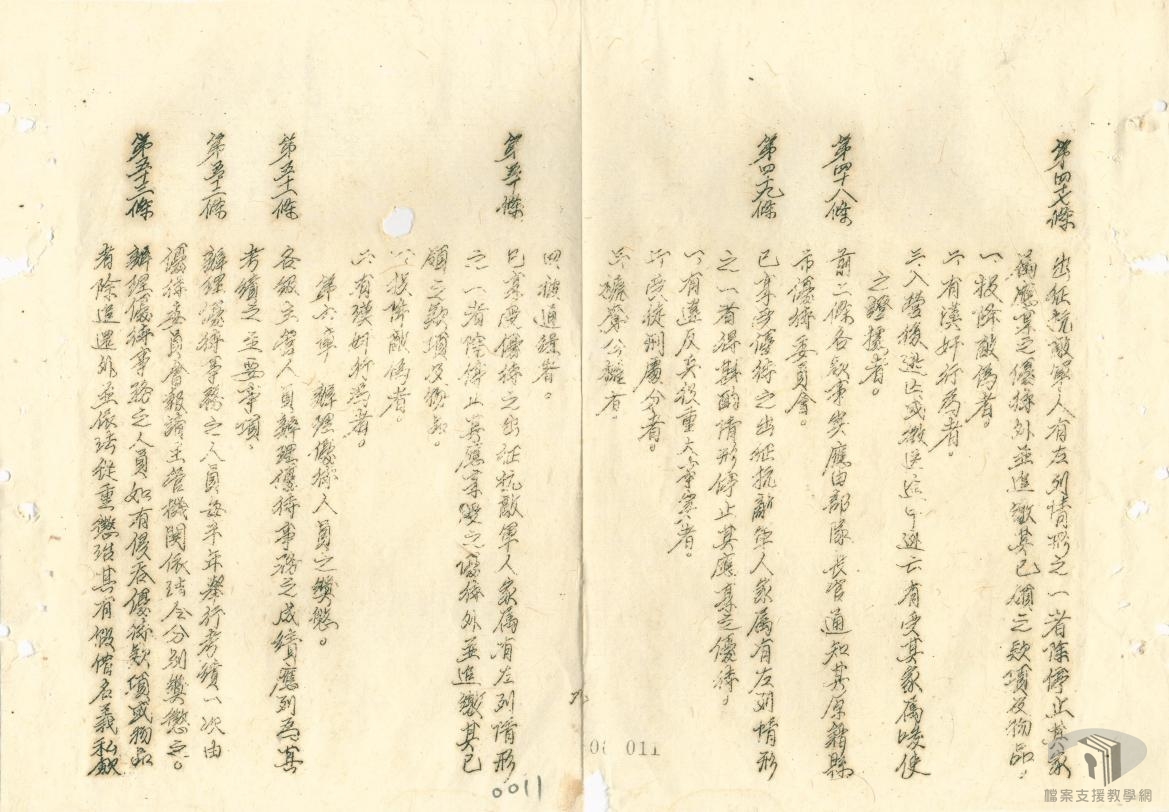 第四十七條 出征抗敵軍人有左列情形之一者除停止其家
屬應享之優待外並追繳其已領之欵項及物品。
一、投降敵偽者。
二、有漢奸行為者。
三、入營後逃亡或徵送途中逃亡有受其家屬唆使
之證據者。
第四十八條 前二條各欵事实應由部隊長官通知其原籍縣
市優待委員會。
第四十九條 已享受優待之出征抗敵軍人家屬有左列情形
之一者得斟酌情形停止其應享之優待。
一、有違反兵役重大事實者。
二、受徒刑處分者。
三、褫奪公權者。
四、被通緝者。
第五十條 已享受優待之出征抗敵軍人家屬有左列情形
之一者除停止其應享受之優待外並追繳其已
領之欵項及物品。
一、投降敵偽者。
二、有漢奸行為者。
第六章 辦理優待人員之獎懲。
第五十一條 各級主管人員辦理優待事務之成績應列為其
考績之主要事項。
第五十二條 辦理優待事務之人員每半年舉行考績一次由
優待委員會報請主管機関依法令分別獎懲之。
第五十三條 辦理優待事務之人員如有侵吞優待欵項或物品
者除追還外並依法從重懲治其有假借名義私歛
06 011
0011
檔案支援教學網